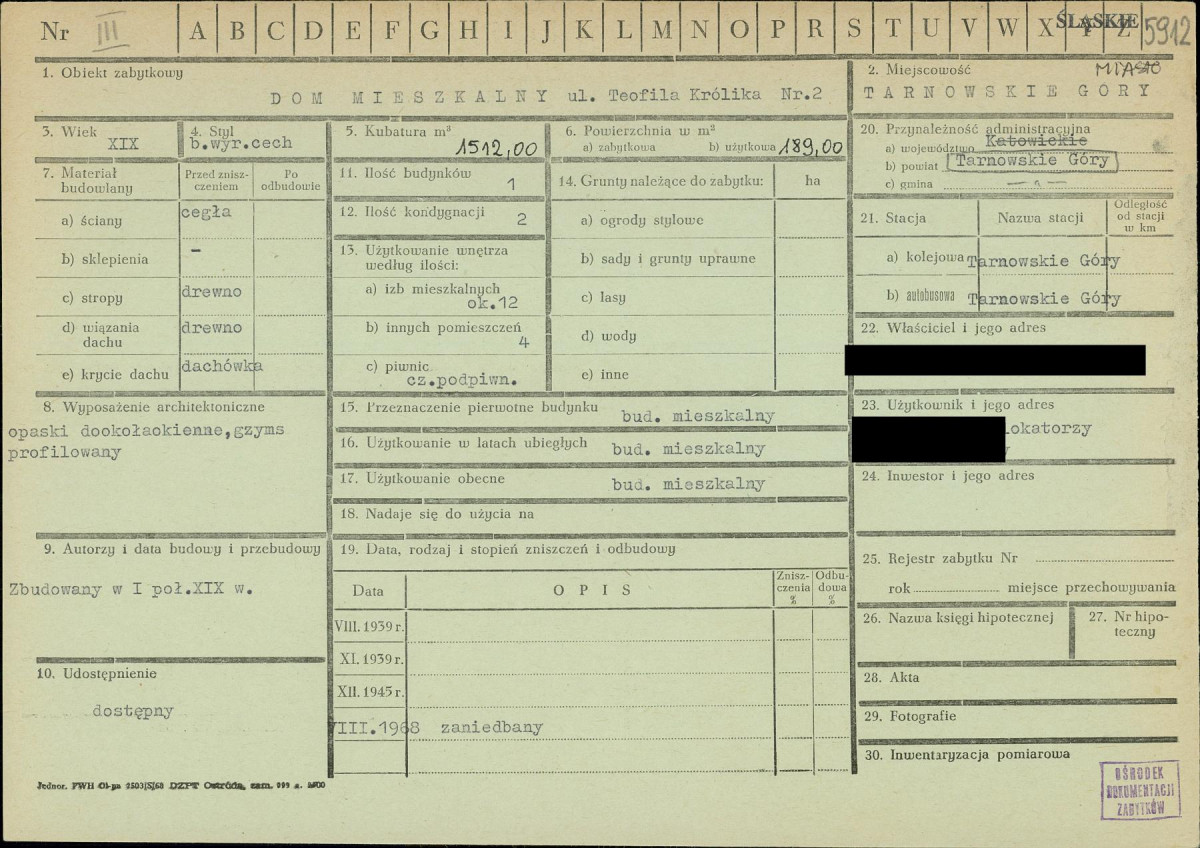 Nr III A B C D E F G H I J K L M N O P R S T U V W X Y Z ŚLĄSKIE 5912
1. Obiekt zabytkowy
DOM MIESZKALNY ul. Teofila Królika Nr.2
2. Miejscowość MIASTO
TARNOWSKIE GÓRY
3. Wiek
XIX
4. Styl
b.wyr.cech
5. Kubatura m³
1512,00
6. Powierzchnia w m²
a) zabytkowa b) użytkowa 189,00
20. Przynależność administracyjna
a) województwo Katowickie
b) powiat Tarnowskie Góry
c) gmina — " —
7. Materiał budowlany
Przed zniszczeniem
Po odbudowie
a) ściany cegła
b) sklepienia –
c) stropy drewno
d) wiązania dachu drewno
e) krycie dachu dachówka
11. Ilość budynków
1
12. Ilość kondygnacji
2
13. Użytkowanie wnętrza
według ilości:
a) izb mieszkalnych
ok.12
b) innych pomieszczeń
4
c) piwnic
cz.podpiwn.
14. Grunty należące do zabytku: ha
a) ogrody stylowe
b) sady i grunty uprawne
c) lasy
d) wody
e) inne
21. Stacja Nazwa stacji Odległość od stacji w km
a) kolejowa Tarnowskie Góry
b) autobusowa Tarnowskie Góry
22. Właściciel i jego adres
8. Wyposażenie architektoniczne
opaski dookołaokienne,gzyms
profilowany
15. Przeznaczenie pierwotne budynku bud. mieszkalny
16. Użytkowanie w latach ubiegłych bud. mieszkalny
17. Użytkowanie obecne bud. mieszkalny
18. Nadaje się do użycia na
23. Użytkownik i jego adres
lokatorzy
24. Inwestor i jego adres
9. Autorzy i data budowy i przebudowy
Zbudowany w I poł.XIX w.
19. Data, rodzaj i stopień zniszczeń i odbudowy
Data OPIS Zniszczenia % Odbudowa %
VIII. 1939 r.
XI. 1939 r.
XII. 1945 r.
VIII.1968 zaniedbany
25. Rejestr zabytku Nr
rok miejsce przechowywania
26. Nazwa księgi hipotecznej
27. Nr hipoteczny
28. Akta
29. Fotografie
30. Inwentaryzacja pomiarowa
10. Udostępnienie
dostępny
Jednor. FWH Ol-pn 2503/S/68 DZPT Ostróda, zam.
OŚRODEK
DOKUMENTACJI
ZABYTKÓW